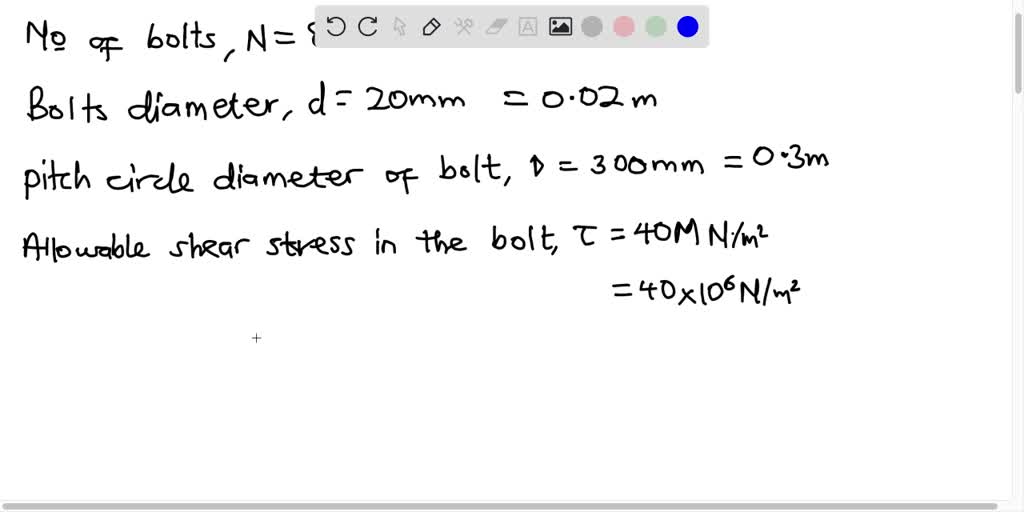 No of bolts, N =
Bolts diameter, d = 20mm = 0.02 m
Pitch circle diameter of bolt, D = 300mm = 0.3m
Allowable shear stress in the bolt, τ = 40M N/m²
= 40×10⁶ N/m²